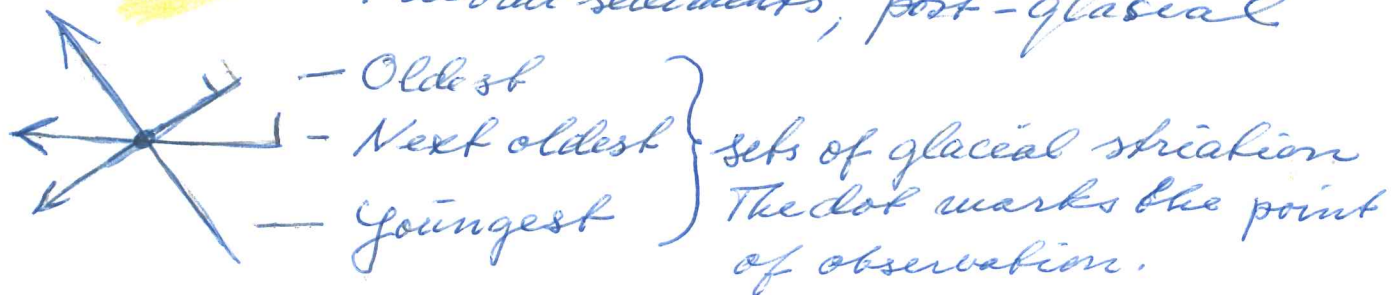 sediments, post-glacial
— Oldest
- Next oldest
— Youngest
sets of glacial striation
The dot marks the point
of observation.